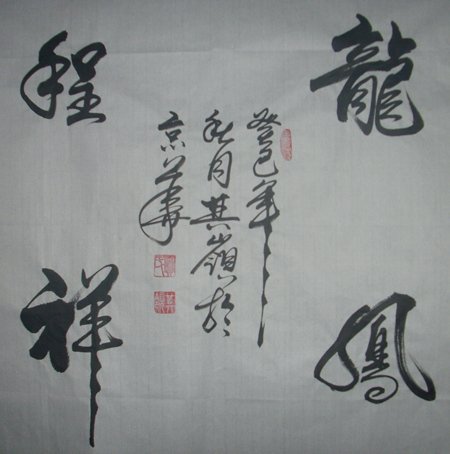 龍鳳
程祥
癸巳年
秋月其嶺於
京華